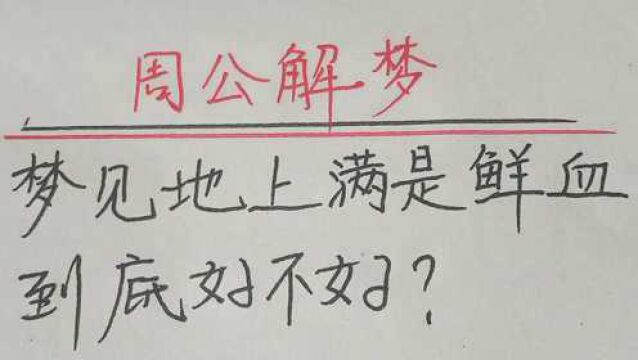 周公解梦
梦见地上满是鲜血
到底好不好?